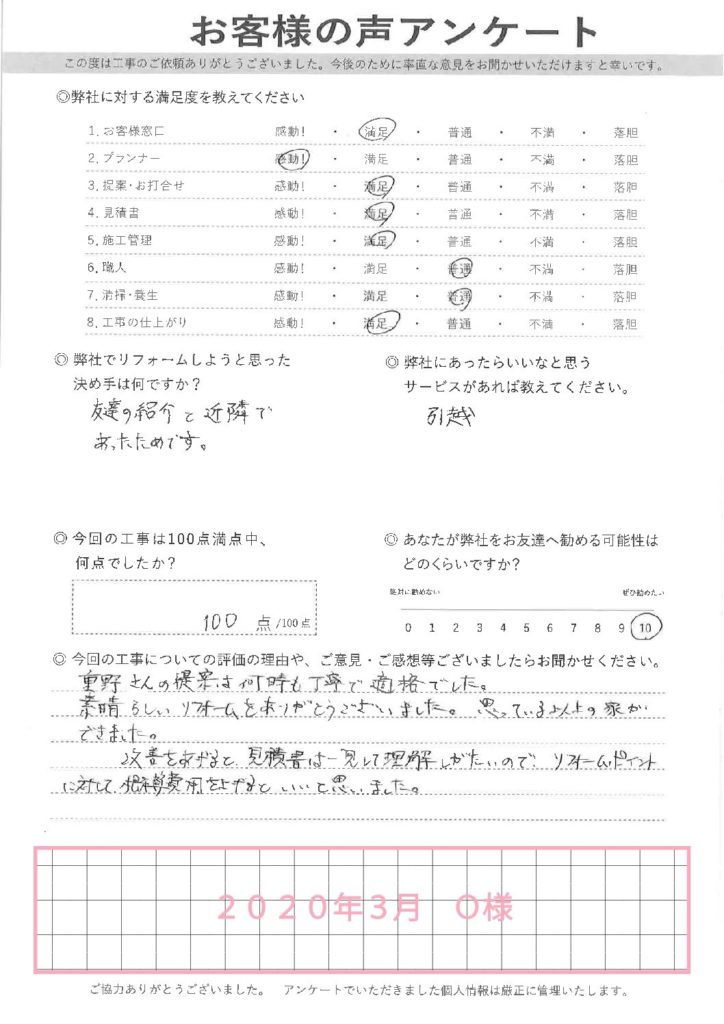 お客様の声アンケート
この度は工事のご依頼ありがとうございました。今後のために率直な意見をお聞かせいただけますと幸いです。
◎弊社に対する満足度を教えてください
1. お客様窓口 感動! ・ 満足 ・ 普通 ・ 不満 ・ 落胆
2. プランナー 感動! ・ 満足 ・ 普通 ・ 不満 ・ 落胆
3. 提案・お打合せ 感動! ・ 満足 ・ 普通 ・ 不満 ・ 落胆
4. 見積書 感動! ・ 満足 ・ 普通 ・ 不満 ・ 落胆
5. 施工管理 感動! ・ 満足 ・ 普通 ・ 不満 ・ 落胆
6. 職人 感動! ・ 満足 ・ 普通 ・ 不満 ・ 落胆
7. 清掃・養生 感動! ・ 満足 ・ 普通 ・ 不満 ・ 落胆
8. 工事の仕上がり 感動! ・ 満足 ・ 普通 ・ 不満 ・ 落胆
◎ 弊社でリフォームしようと思った
決め手は何ですか?
友達の紹介と近隣で
あったためです。
◎ 弊社にあったらいいなと思う
サービスがあれば教えてください。
引越
◎ 今回の工事は100点満点中、
何点でしたか?
100 点 /100点
◎ あなたが弊社をお友達へ勧める可能性は
どのくらいですか?
絶対に勧めない ぜひ勧めたい
0 1 2 3 4 5 6 7 8 9 10
◎ 今回の工事についての評価の理由や、ご意見・ご感想等ございましたらお聞かせください。
重野さんの提案は何時も丁寧で適格でした。
素晴らしいリフォームをありがとうございました。思っている以上の家が
できました。
改善をあげると、見積書は一見して理解しがたいので、リフォームポイント
に対して、費用を上げるといいと思いました。
2020年3月 O様
ご協力ありがとうございました。 アンケートでいただきました個人情報は厳正に管理いたします。